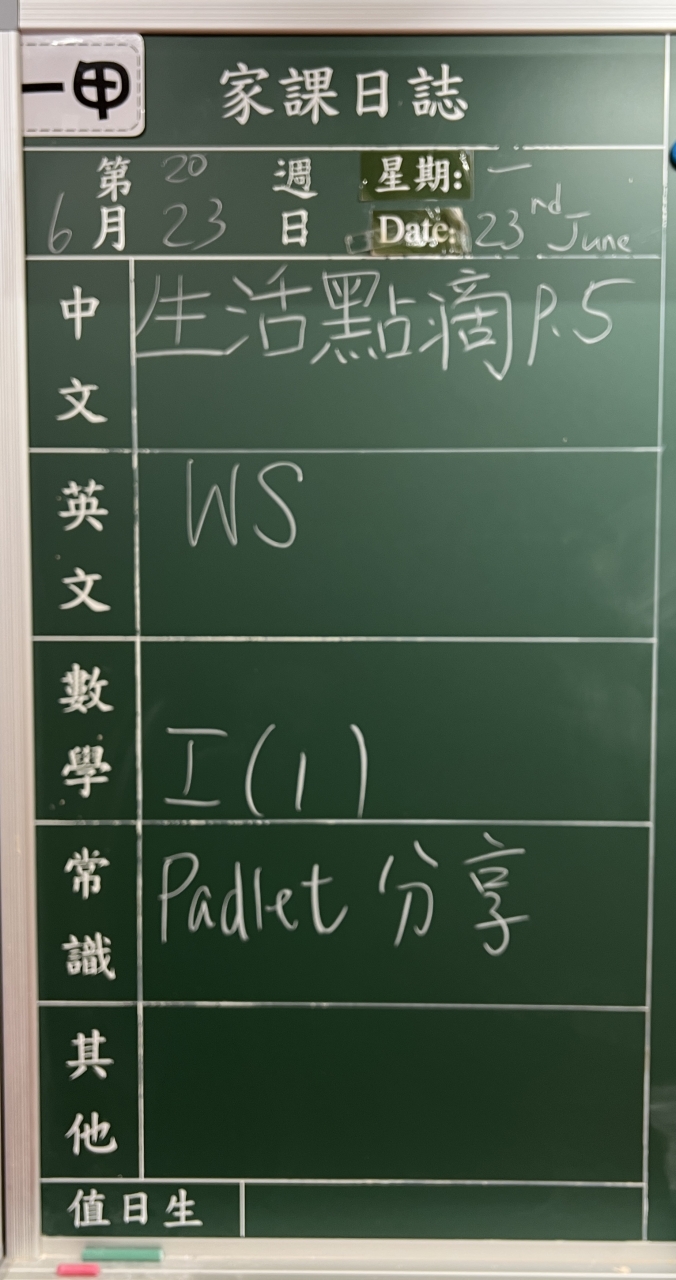 一甲
家課日誌
第 20 週 星期: 一
6 月 23 日 Date: 23rd June
中文 生活點滴 P.5
英文 WS
數學 I(1)
常識 Padlet 分享
其他
值日生